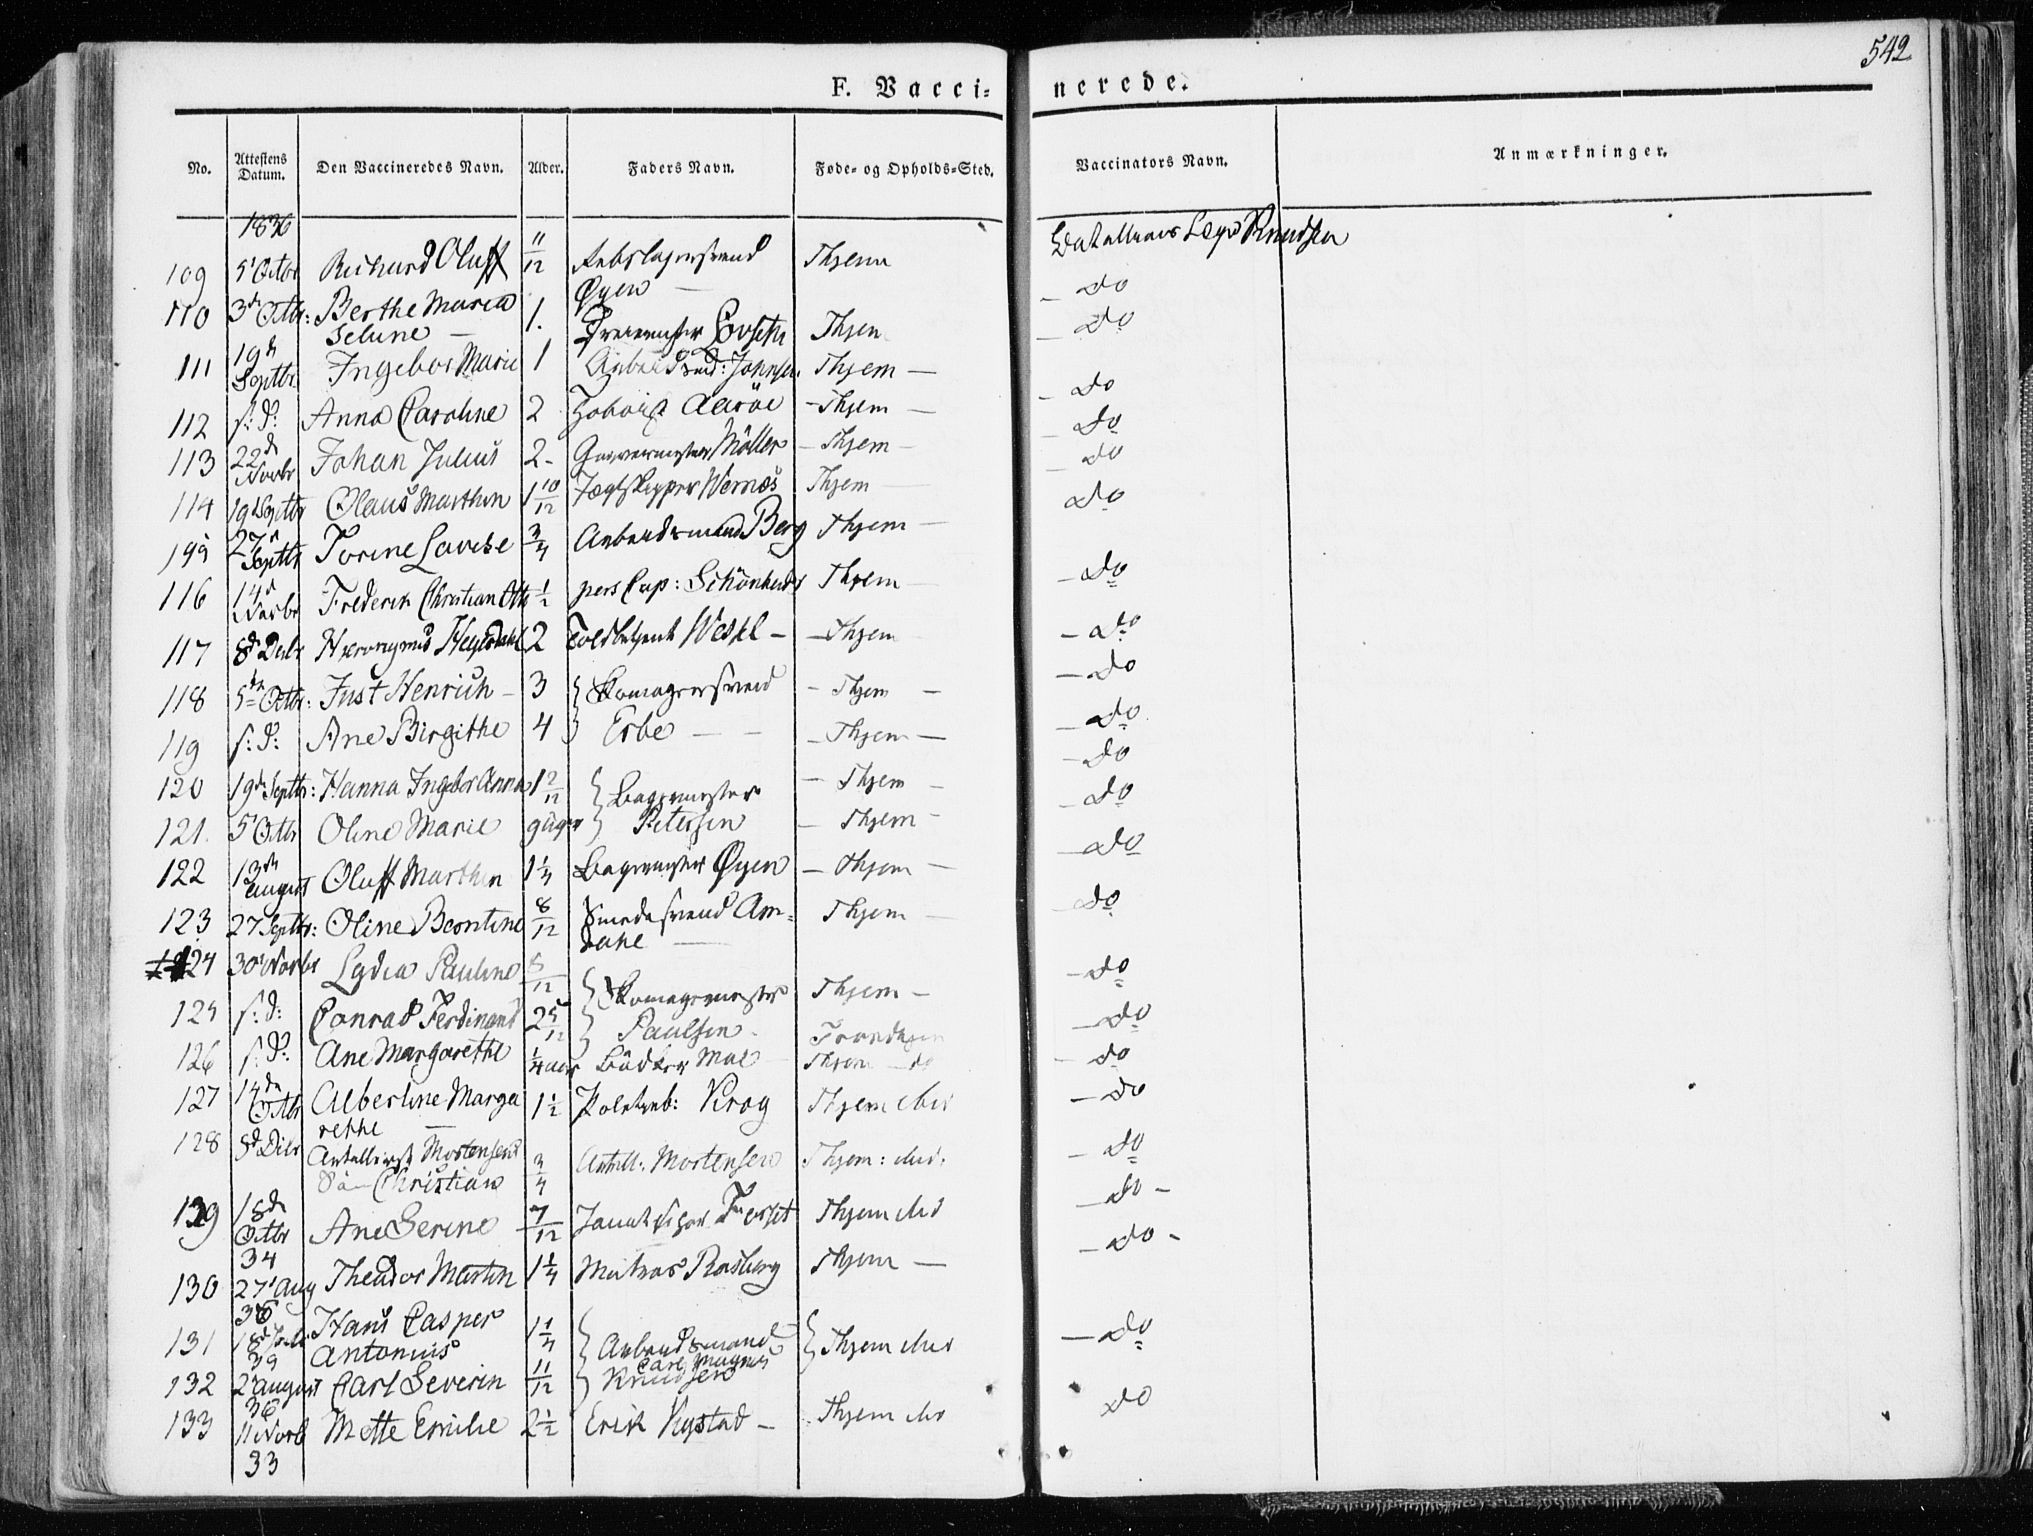 542
F. Vacci= nerede.
No. Attestens Datum. Den Vaccineredes Navn. Alder. Faders Navn. Føde- og Opholds-Sted. Vaccinators Navn. Anmærkninger.
1836
109 5' Octbr Richard Oluff 11/12 Øyen Thjem Knudsen
110 3d Octbr: Berthe Maria Seline 1. Thjem do
111 19d Septbr Ingebor Marie 1 Johnsen Thjem do
112 s: d: Anna Caroline 2 Aaröe Thjem do
113 22d Novbr Johan Julius 2 Möller Thjem do
114 19 Septbr Olaus Marthin 1 10/12 Jægtskipper Wernøs Thjem do
27 Septbr Torine Lovise 3/4 Arbeidsmand Berg Thjem do
116 14d Novbr Frederik Christian Otto 1/2 Cap: Schönheyder Thjem do
117 8d Decbr Hieronymus Heyerdahl 2 Toldbetjent Wessel Thjem do
118 5te Octbr: Just Henrich 3 Skomagersvend Thjem do
119 s: d: Ane Birgithe 4 Erbe Thjem do
120 19d Septbr: Hanna Ingebor Anna 1 2/12 Bagermester Thjem do
121. 5' Octbr Oline Marie Petersen Thjem do
122 13de August Oluff Marthin 1 1/4 Bagermester Øyen Thjem do
123 27 Septbr: Oline Beontine 8/12 Smedesvend Am= dahl Thjem do
124 30' Novbr Lydia Pauline 8/12 Skomagermester Thjem do
125 s: d: Conrad Ferdinand 2 5/12 Paulsen Trondhjem do
126 s: d: Ane Margarethe 1/4 aar Bödker Moe Thjem do do
127 14de Octbr Albertine Marga rethe 1 1/2 Krog Thjem do
128 8d Decbr Mortensens Sön Christian 3/4 Mortensen Thjem: do
129 18d Octbr 34 Ane Serine 7/12 Thjem do
130 27' Aug 36 Theador Martin 1 1/4 Matros Rosberg Thjem do
131 18d 39 Hans Casper Antonius 1 1/4 Arbeidsmand Thjem do
132 2' August 36 Carl Severin 11/12 Carl Magnus Knudsen
133 11 Novb 33 Mette Emilie 2 1/2 Erik Rystad Thjem do